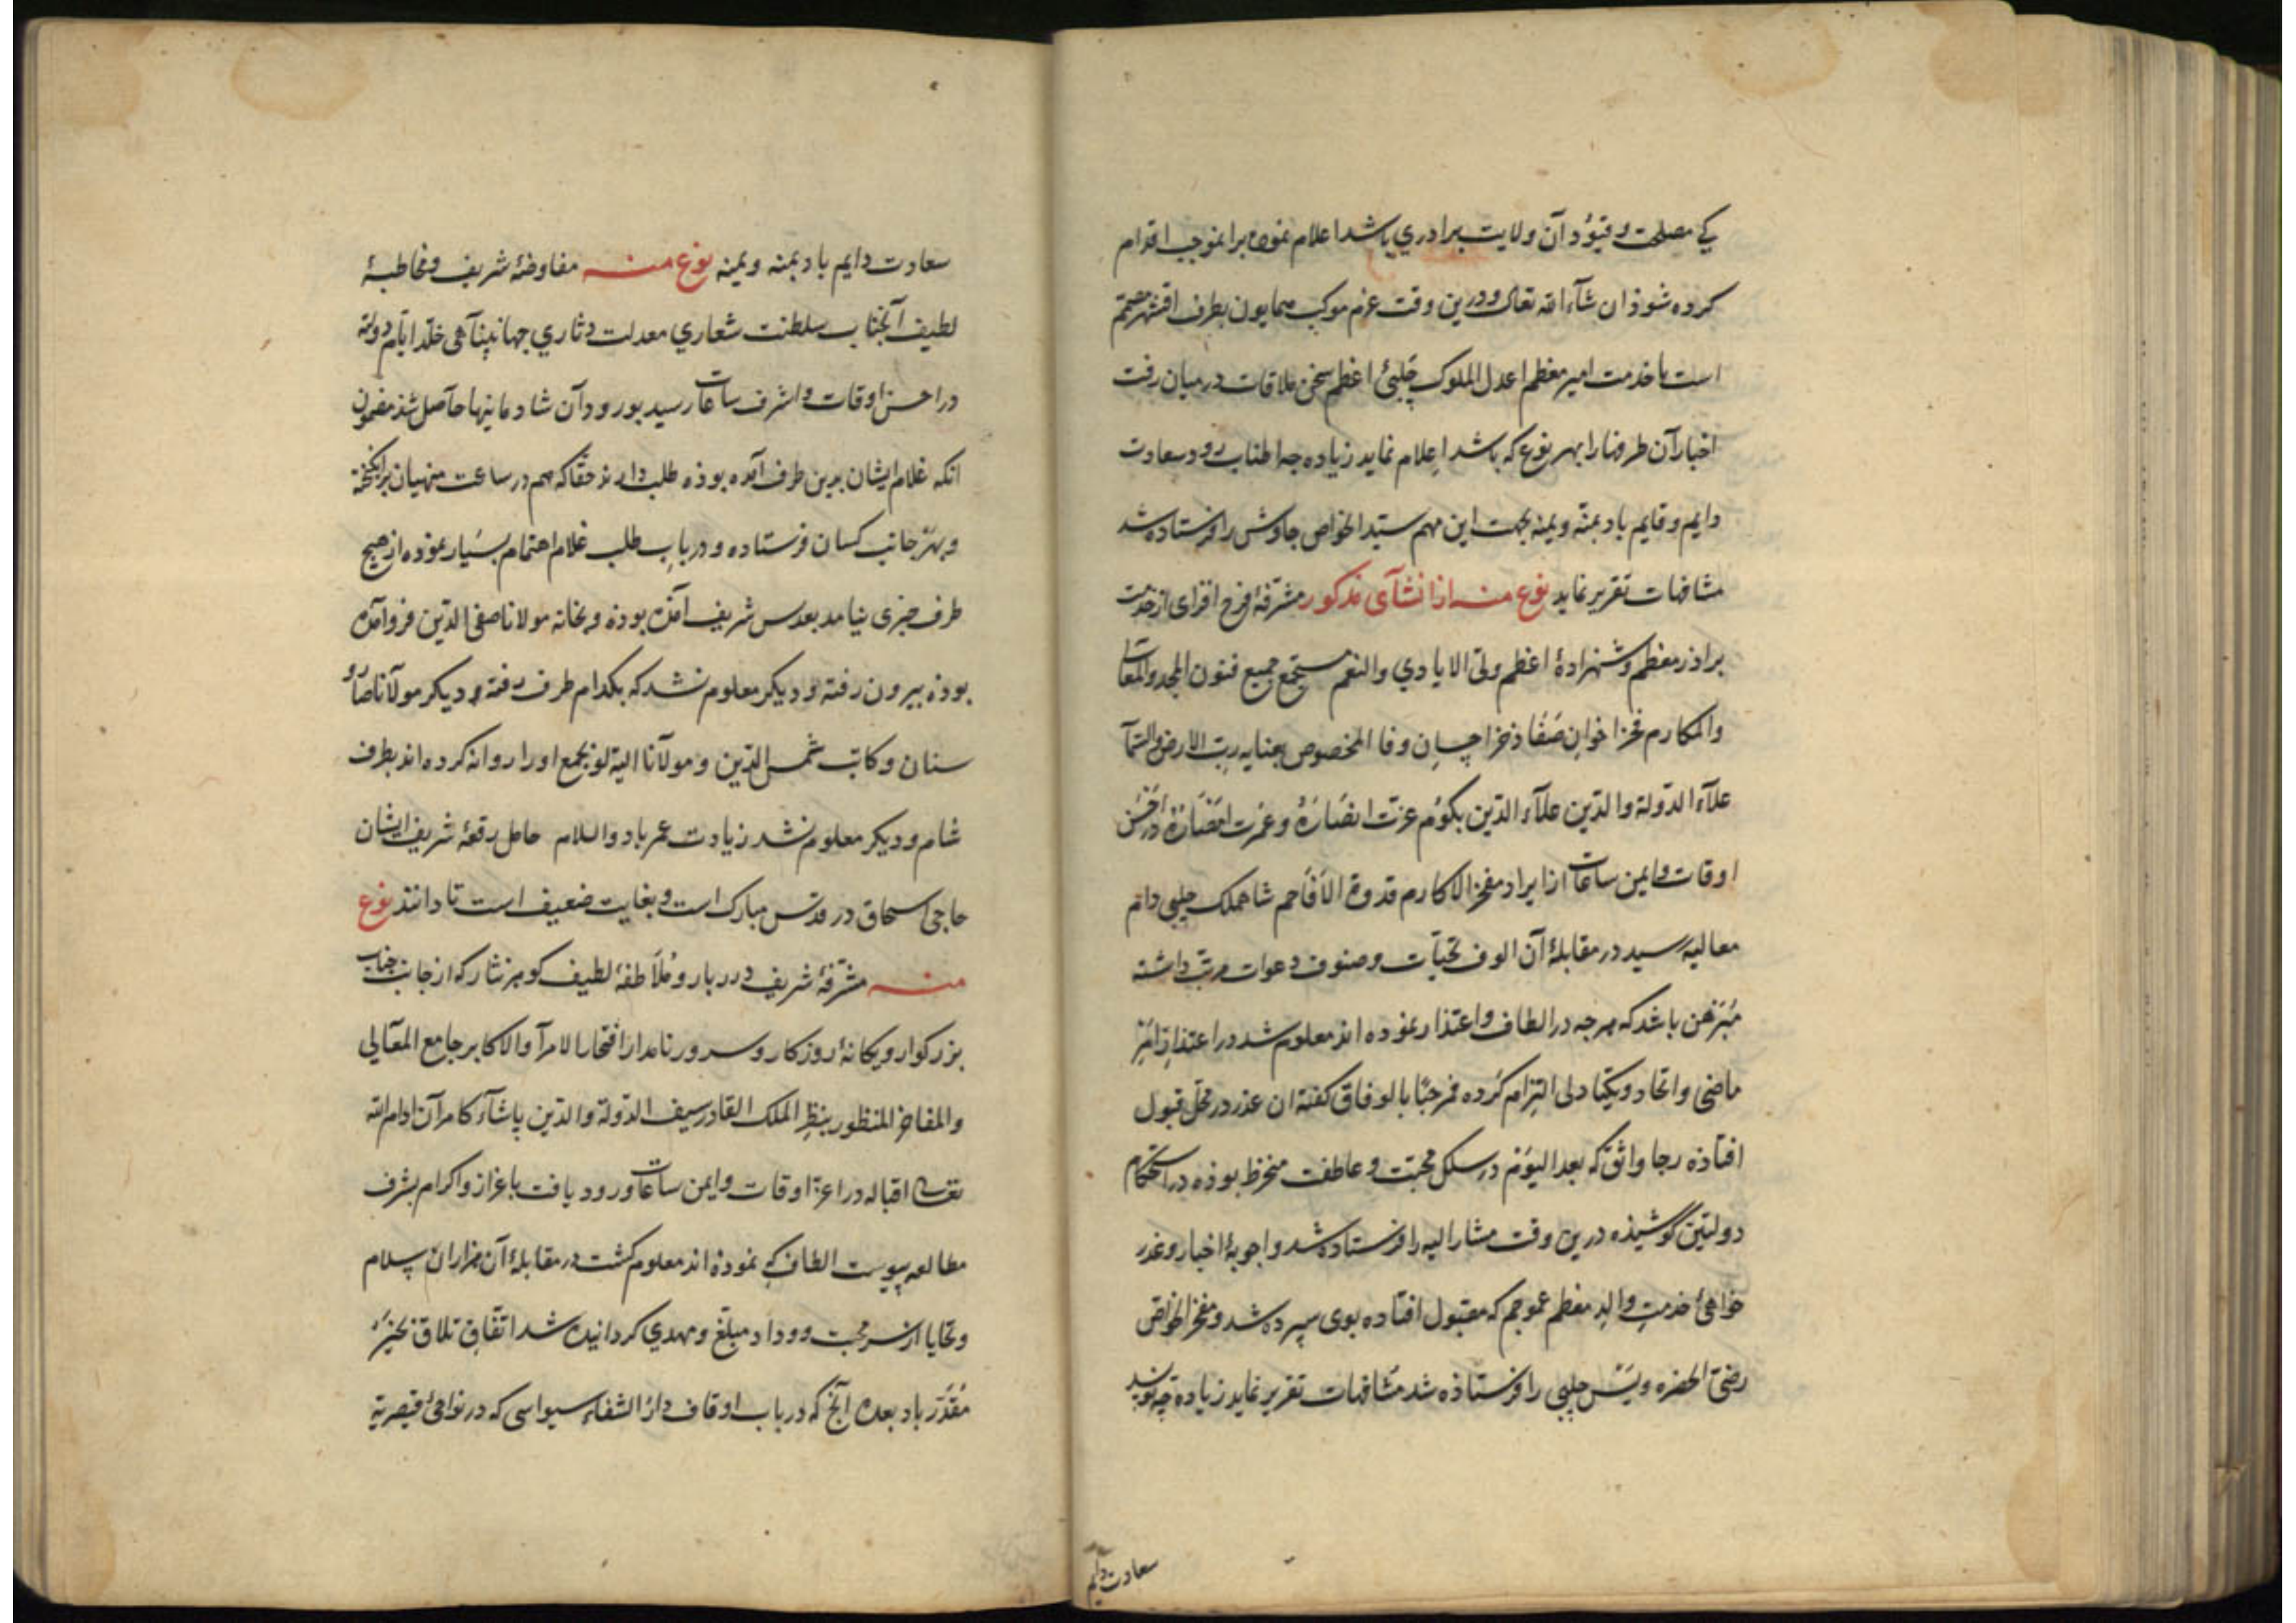 کی مصلحت و قیود آن ولایت برادری باشد اعلام نموده برانموجب اقدام
کرده شود ان شاء الله تعالی و درین وقت عزم موکب همایون بطرف اقشهر مصمم
است با خدمت امیر معظم اعدل الملوک چلبی اعظم سخن ملاقات در میان رفت
اخبار آن طرفها را بهر نوع که باشد اعلام نماید زیاده چه اطناب رود سعادت
دایم و قایم باد بمنه و یمنه بجهت این مهم سید الخواص جاوش را فرستاده شد
مشافهات تقریر نماید نوع منه از انشآی مذکور مشرفۀ فرح افزای از خدمت
برادر معظم و شهزادۀ اعظم ولی الایادی والنعم مستجمع جمیع فنون المجد والمعالی
والمکارم فخر اخوان صفا ذخر احسان وفا المخصوص بعنایه رب الارض والسما
علاء الدوله والدین علاء الدین بکوم عزت انصاره و عمرت در احسن
اوقات و ایمن ساعات از ایراد مفخر الاکارم قدوة الافاخم شاهملک چلبی دام
معالیه رسید در مقابلۀ آن الوف تحیات و صنوف دعوات مرتب داشته
مبرهن باشد که هر چه در الطاف و اعتذار نموده اند معلوم شد در اعتذار امر
ماضی و اتحاد و یکتا دلی التزام کرده مرحبًا بالوفاق کفته ان عذر در محل قبول
افتاده رجا واثق که بعد الیوم در سلک محبت و عاطفت منخرط بوده در استحکام
دولتین کوشیذه درین وقت مشار الیه را فرستاده شد و اجوبۀ اخبار و عذر
خواهی خدمت والد معظم عموجم که مقبول افتاده بوی سپرده شد و مفخر الخواص
رضی الحضره ویس چلبی را فرستاذه شد مشافهات تقریر نماید زیاده چه نویسد
سعادت دایم
سعادت دایم باد بمنه و یمنه نوع منه مفاوضۀ شریف و مخاطبۀ
لطیف آنجناب سلطنت شعاری معدلت دثاری جهانپناهی خلد ایام دولته
در احسن اوقات و اشرف ساعات رسید بورود آن شادمانیها حاصل شذ مضمون
انکه غلام ایشان بدین طرف آمده بوذه طلب دارند حقا که هم در ساعت منهیان برانکیخته
و بهر جانب کسان فرستاده و در باب طلب غلام اهتمام بسیار نموده از هیچ
طرف خبری نیامد بقدس شریف آمده بوده و بخانه مولانا صفی الدین فرو آمده
بوذه بیرون رفته و دیکر معلوم نشد که بکدام طرف رفته و دیکر مولانا صارو
سنان و کاتب شمس الدین و مولانا بجمع او را روانه کرده اند بطرف
شام و دیکر معلوم نشد زیادت عمر باد والسلام حامل رقعۀ شریف ایشان
حاجی اسحاق در قدس مبارک است و بغایت ضعیف است تا دانند نوع
منه مشرفۀ شریف درر بار و ملاطفۀ لطیف کوهر نثار که از جانب جناب
بزرکوار و یکانۀ روزکار و سرور نامدار افتخار الامرآ والاکابر جامع المعالی
والمفاخر المنظور بنظر الملک القادر سیف الدوله والدین پاشاء کامران ادام الله
تعالی اقباله در اعز اوقات و ایمن ساعات ورود یافت باعزاز و اکرام بشرف
مطالعه پیوست الطاف که نموذه اند معلوم کشت در مقابلۀ آن هزاران سلام
و تحایا از سر محبت و وداد مبلغ و مهدی کردانیده شد اتفاق تلاق بخیر
مقدر باد بعده آنج که در باب اوقاف دار الشفاء سیواسی که در نواحی قیصریه